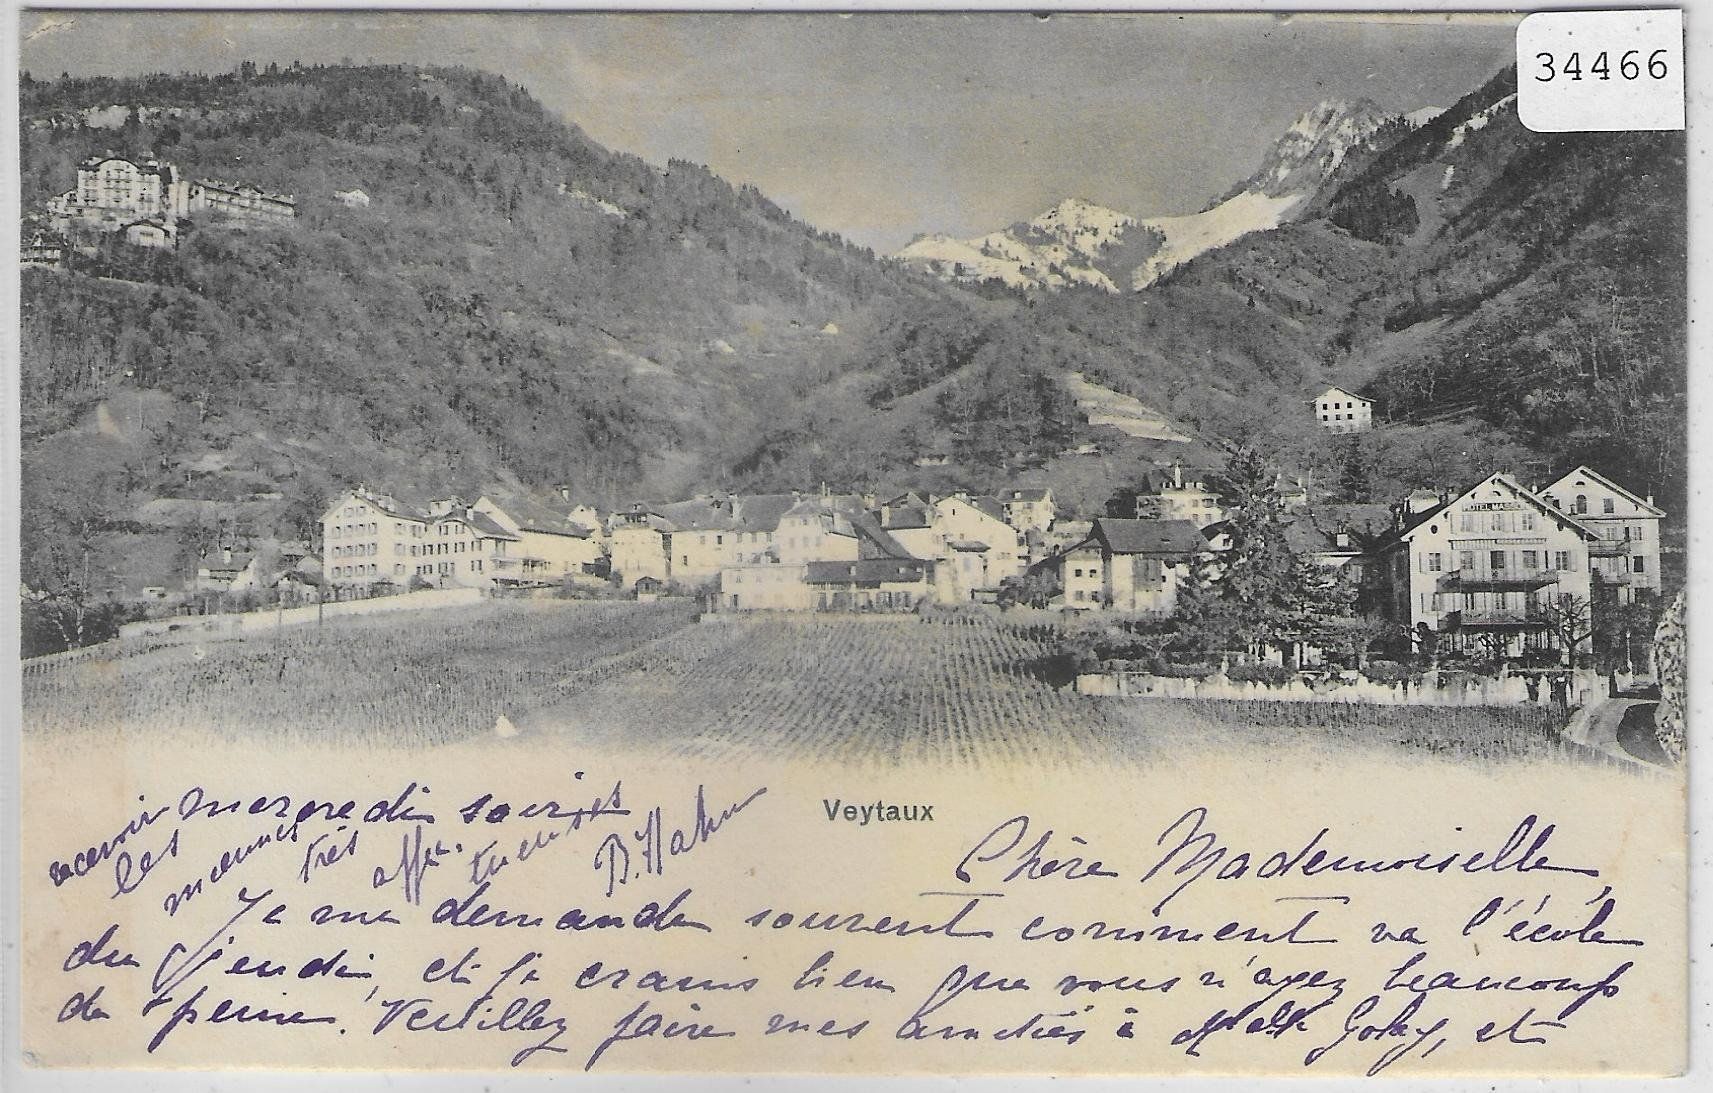 34466
HOTEL MASSON
Veytaux
Chère Mademoiselle,
Je me demande souvent comment va l'école
du jeudi, et je crains bien que vous n'ayez beaucoup
de peine. Veuillez faire mes amitiés à Melle Golay, et
recevoir mercredi soir
les miennes très affectueuses
B. Hahn